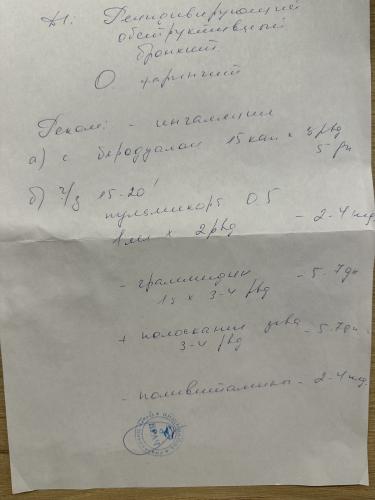 Ds: Рецидивирующий
обструктивный
бронхит.
О. фарингит
Реком: - ингаляции
а) с беродуалом 15 кап х 3 р/д
5 дн
б) ч/з 15-20'
пульмикорт 0.5
1 мл х 2 р/д - 2-4 нед
- граммидин - 5-7 дн
1т х 3-4 р/д
+ полоскание зева - 5-7 дн
3-4 р/д
- поливитамины - 2-4 нед
ВРАЧ